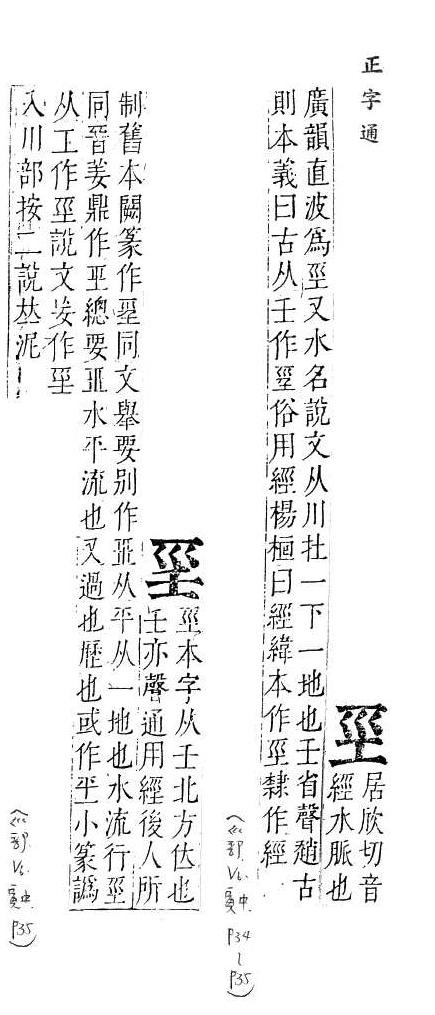 正字通
巠
居欣切音
經水脈也
廣韻直波爲巠又水名說文从川在一下一地也壬省聲趙古
則本義曰古从壬作𢀖俗用經楊桓曰經緯本作巠隸作經
(巛部 寅中 P34~P35)
𢀖
巠本字从壬北方位也
壬亦聲通用經後人所
制舊本闕篆作𢀖同文舉要別作巠从平从一地也水流行巠
同晉姜鼎作巠總要巠水平流也又過也歷也或作坙小篆譌
从工作巠說文妄作巠
入川部按二說𠀤泥
(巛部 寅中 P35)